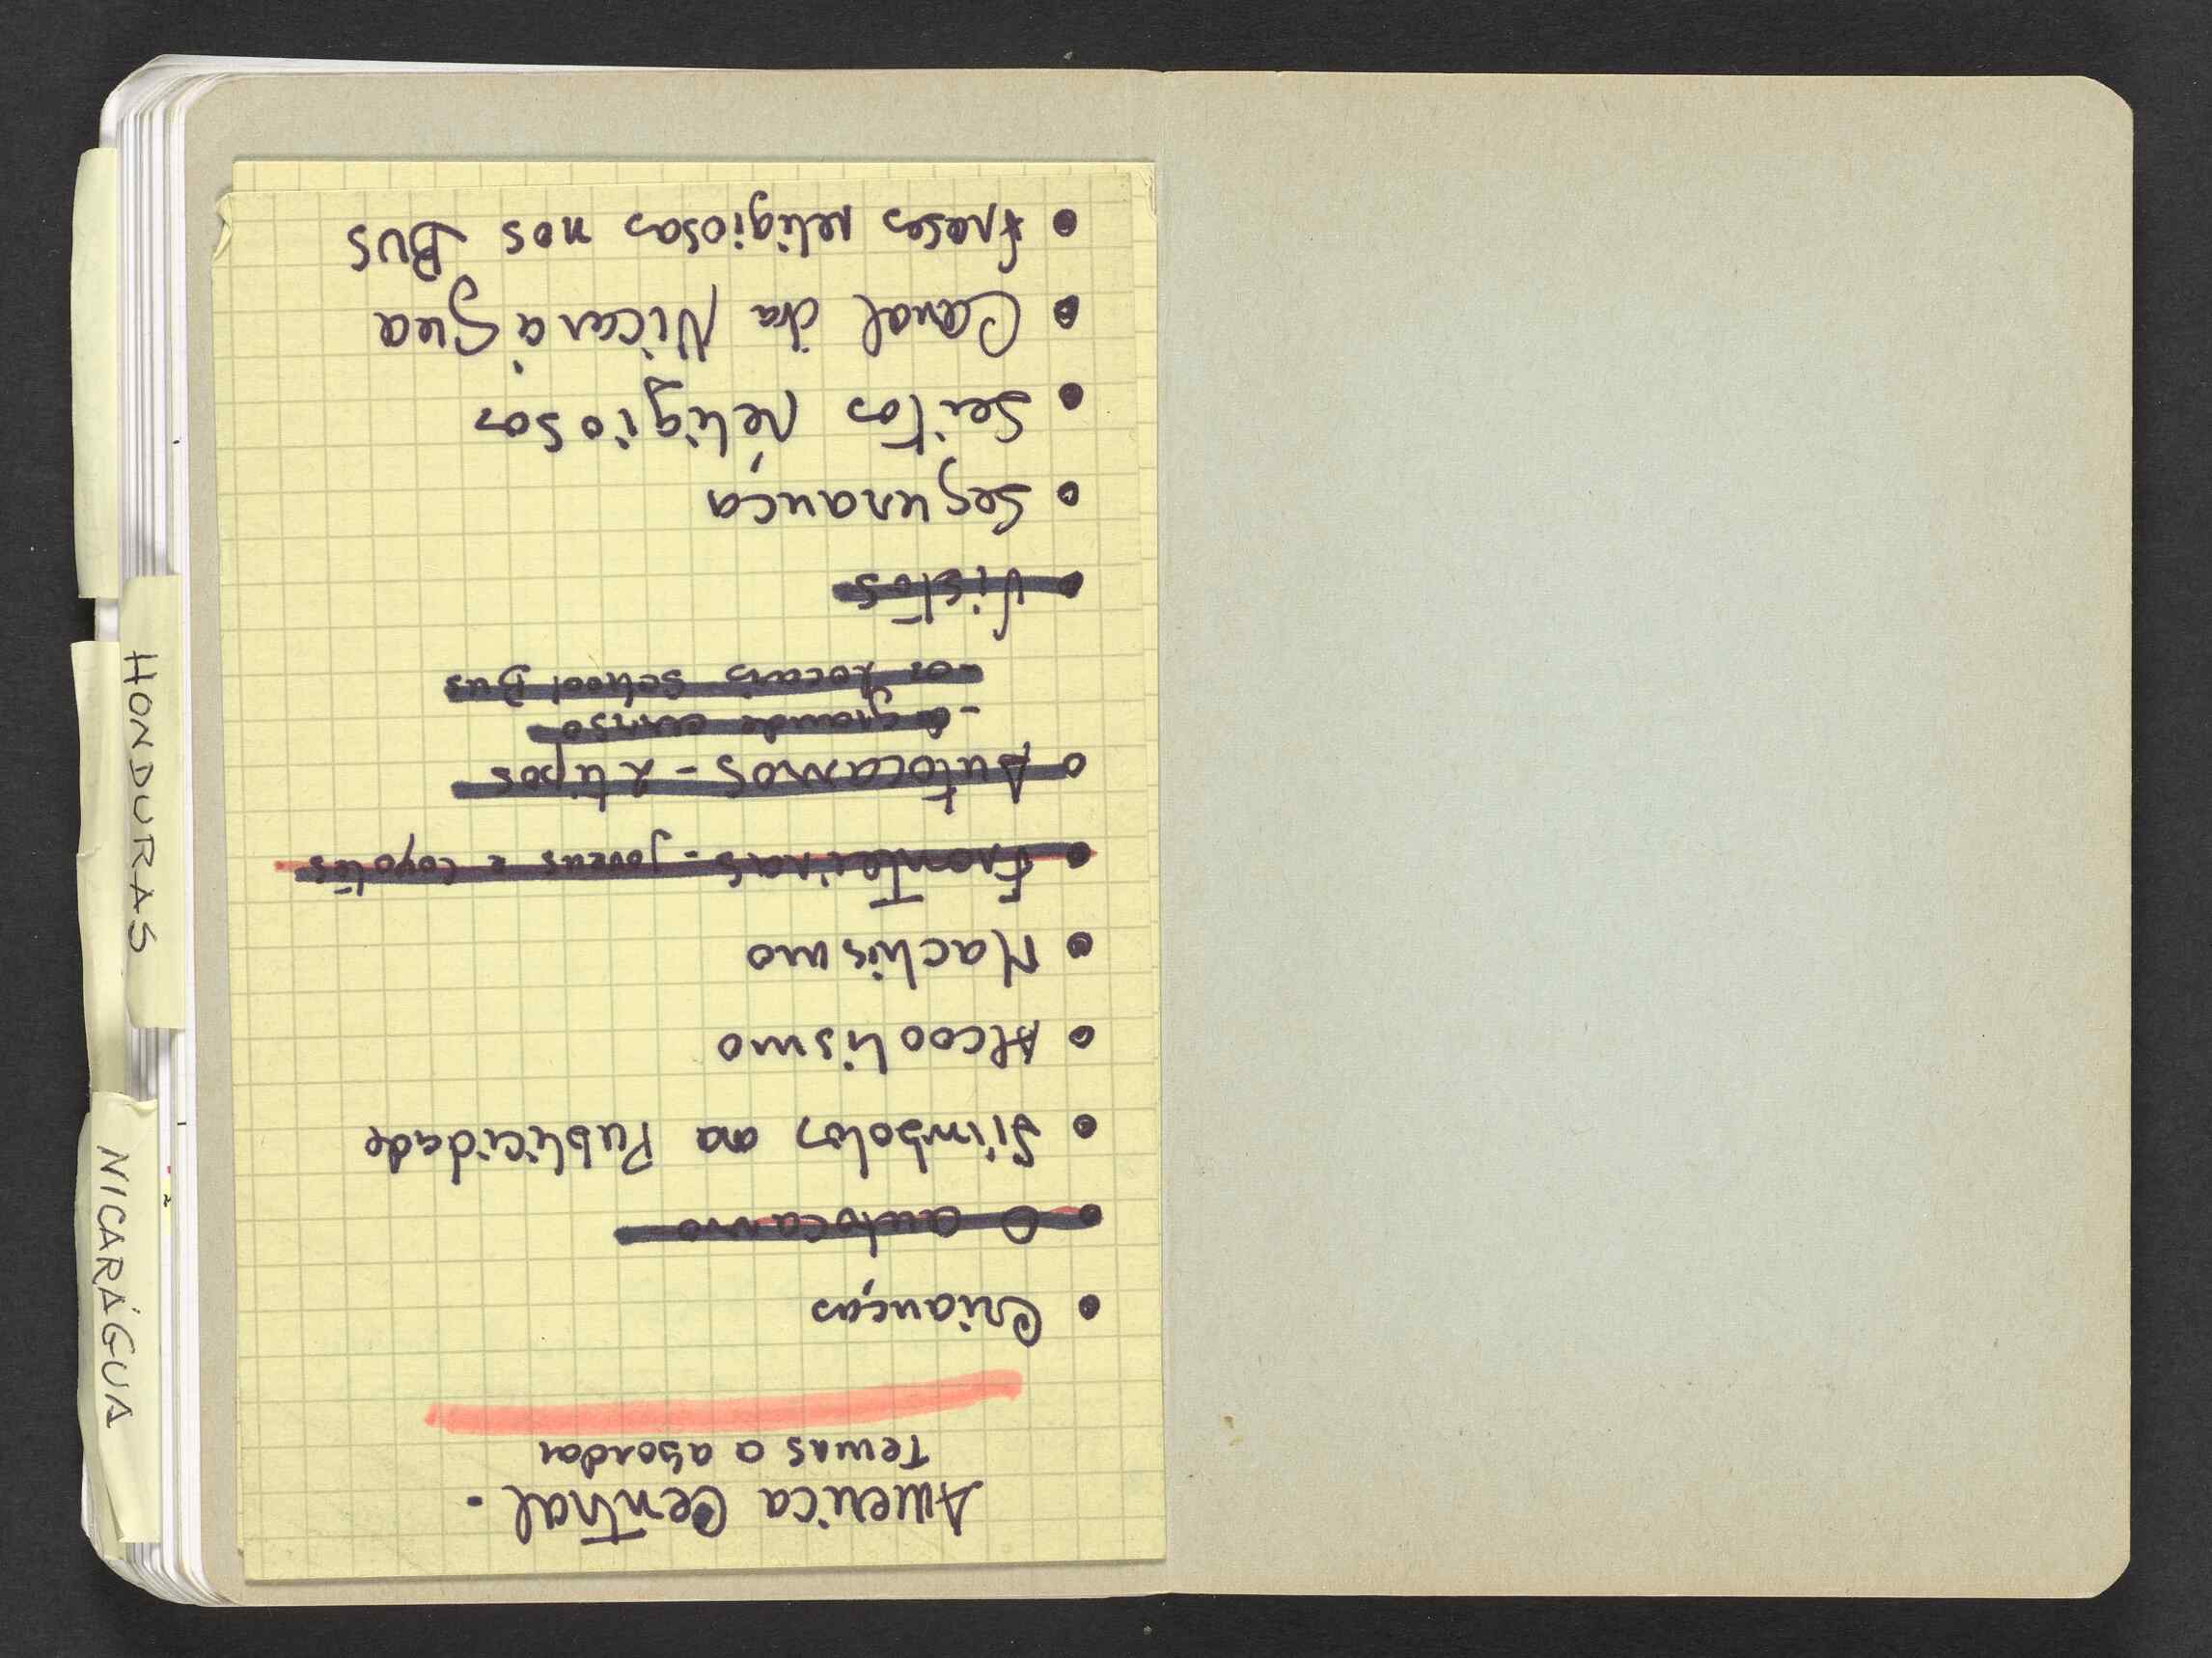 America Central -
Temas a abordar
• Crianças
• O autocarro
• Símbolos na Publicidade
• Alcoolismo
• Machismo
• Fronteiras - jovens e coyotes
• Autocarros - 2 tipos
- o grande curso
- os locais school Bus
• Vistos
• Segurança
• Seitas Religiosas
• Canal da Nicarágua
• frases religiosas nos BUS
HONDURAS
NICARÁGUA